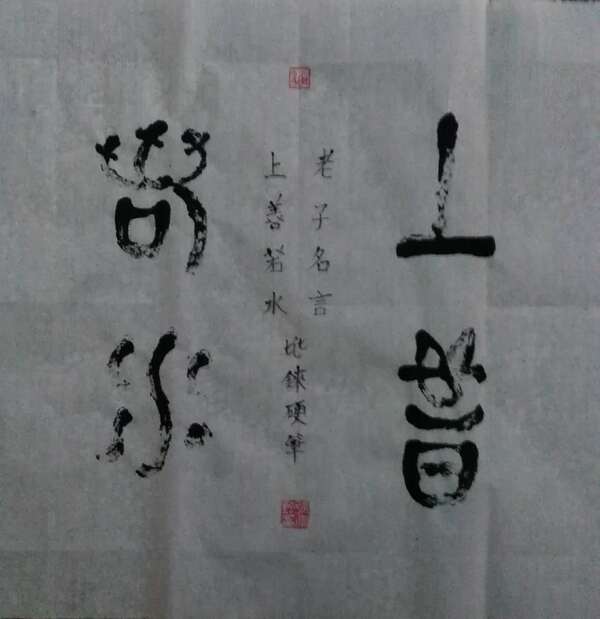 上善
老子名言
上善若水
硬筆
若水